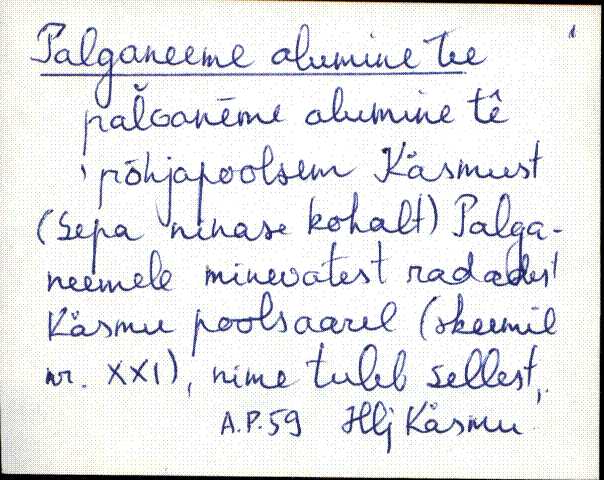 1
Palganeeme alumine tee
palGanēme alumine tê
'põhjapoolsem Käsmust
(Sepa ninase kohalt) Palga-
neemele minevatest radadest
Käsmu poolsaarel (skeemil
nr. XXI), nime tuleb sellest,
A.P.59 Hlj Käsmu